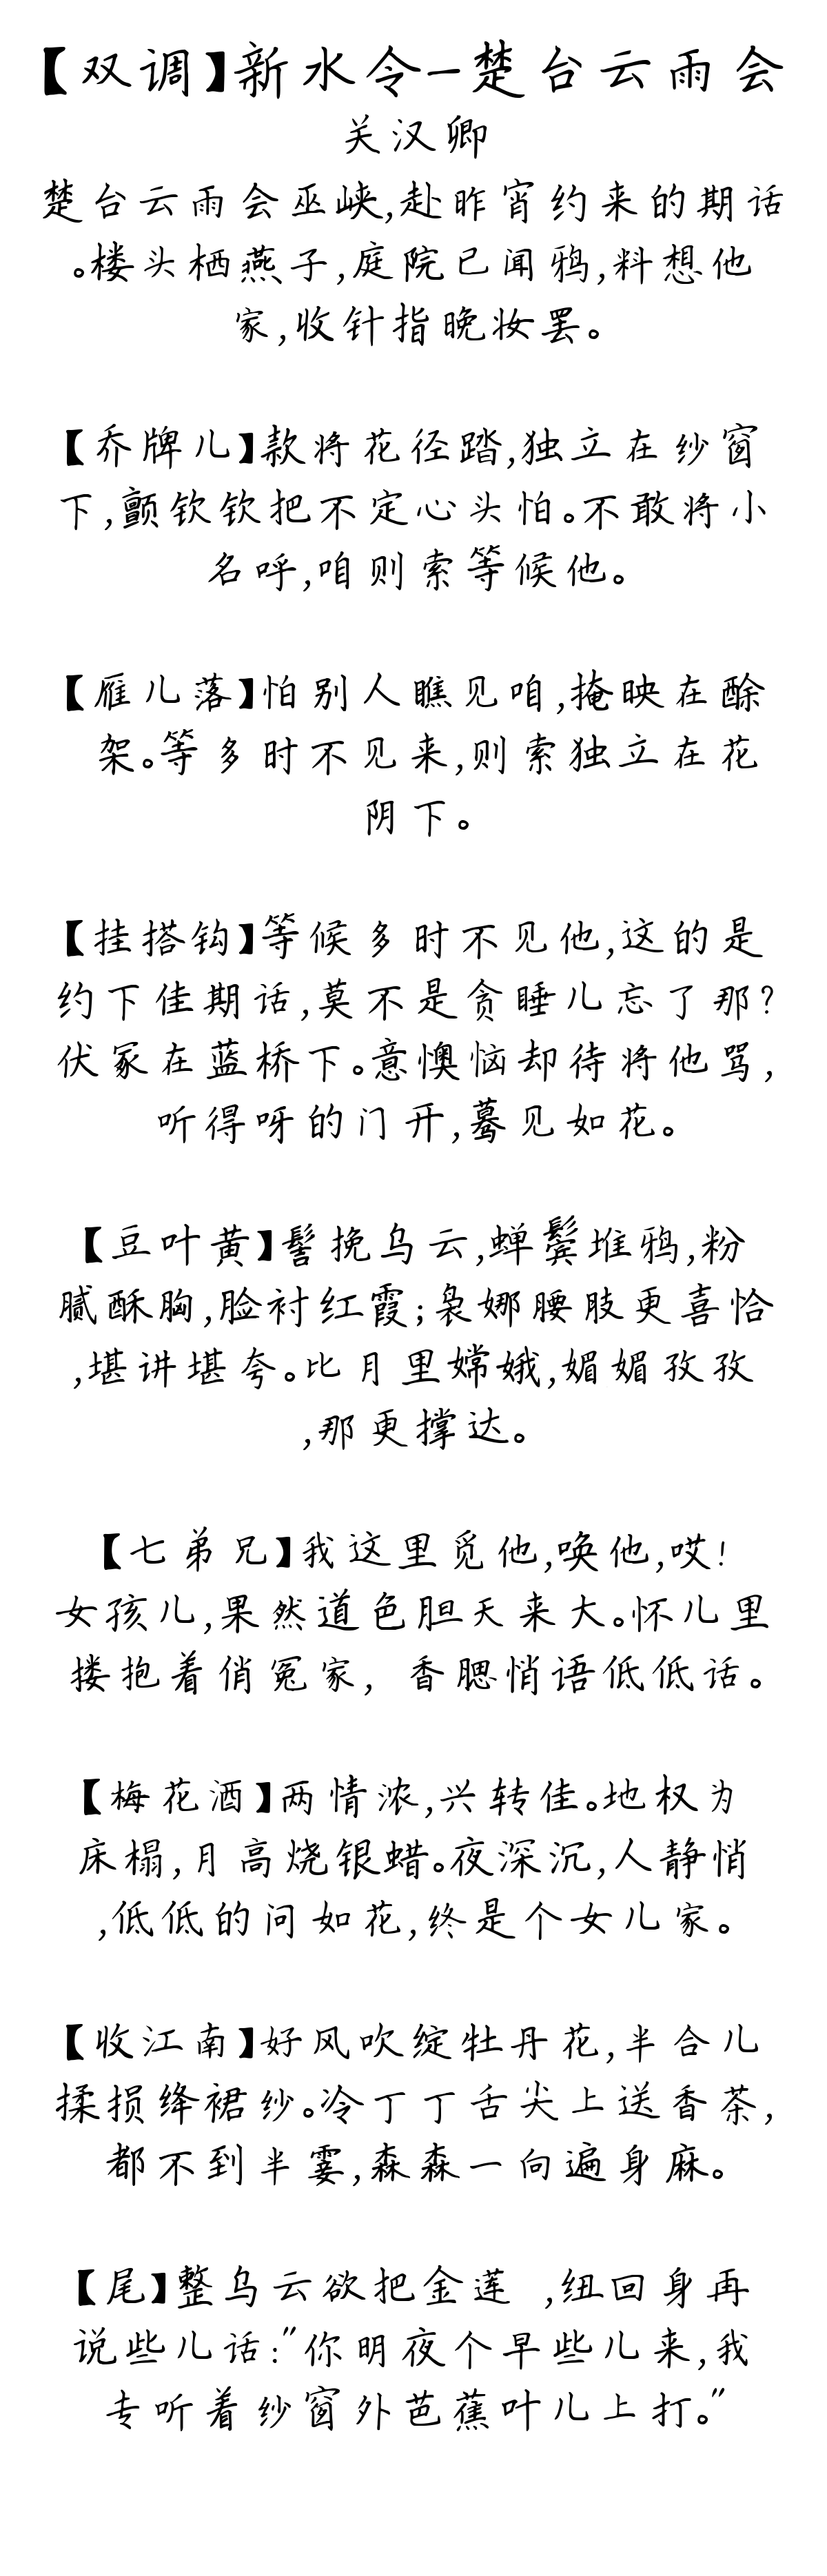 【双调】新水令-楚台云雨会
关汉卿
楚台云雨会巫峡,赴昨宵约来的期话
。楼头栖燕子,庭院已闻鸦,料想他
家,收针指晚妆罢。
【乔牌儿】款将花径踏,独立在纱窗
下,颤钦钦把不定心头怕。不敢将小
名呼,咱则索等候他。
【雁儿落】怕别人瞧见咱,掩映在酴
架。等多时不见来,则索独立在花
阴下。
【挂搭钩】等候多时不见他,这的是
约下佳期话,莫不是贪睡儿忘了那?
伏冢在蓝桥下。意懊恼却待将他骂,
听得呀的门开,蓦见如花。
【豆叶黄】髻挽乌云,蝉鬓堆鸦,粉
腻酥胸,脸衬红霞;袅娜腰肢更喜恰
,堪讲堪夸。比月里嫦娥,媚媚孜孜
,那更撑达。
【七弟兄】我这里觅他,唤他,哎!
女孩儿,果然道色胆天来大。怀儿里
搂抱着俏冤家, 香腮悄语低低话。
【梅花酒】两情浓,兴转佳。地权为
床榻,月高烧银蜡。夜深沉,人静悄
,低低的问如花,终是个女儿家。
【收江南】好风吹绽牡丹花,半合儿
揉损绛裙纱。冷丁丁舌尖上送香茶,
都不到半霎,森森一向遍身麻。
【尾】整乌云欲把金莲 ,纽回身再
说些儿话:"你明夜个早些儿来,我
专听着纱窗外芭蕉叶儿上打。"